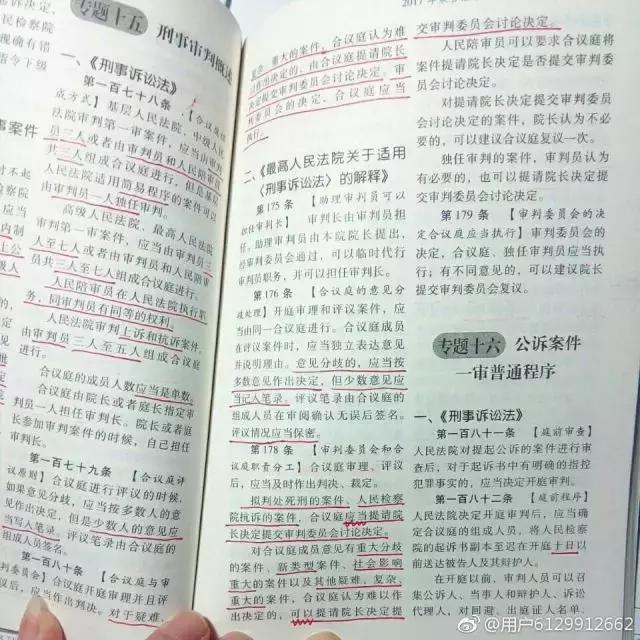 专题十五 刑事审判概述
一、《刑事诉讼法》
第一百七十八条 【合议庭组
成方式】基层人民法院、中级人民
法院审判第一审案件，应当由审判
员三人或者由审判员和人民陪审员
共三人组成合议庭进行，但是基层
人民法院适用简易程序的案件可以
由审判员一人独任审判。
高级人民法院、最高人民法院
审判第一审案件，应当由审判员三
人至七人或者由审判员和人民陪审
员共三人至七人组成合议庭进行。
人民陪审员在人民法院执行职
务，同审判员有同等的权利。
人民法院审判上诉和抗诉案件，
由审判员三人至五人组成合议庭
进行。
合议庭的成员人数应当是单数。
合议庭由院长或者庭长指定审
判员一人担任审判长。院长或者庭
长参加审判案件的时候，自己担任
审判长。
第一百七十九条 【合议庭评
议原则】合议庭进行评议的时候，
如果意见分歧，应当按多数人的意
见作出决定，但是少数人的意见应
当写入笔录。评议笔录由合议庭的
组成人员签名。
第一百八十条 【合议庭与审
判委员会】合议庭开庭审理并且评
议后，应当作出判决。对于疑难、
复杂、重大的案件，合议庭认为难
以作出决定的，由合议庭提请院长
决定提交审判委员会讨论决定。审
判委员会的决定，合议庭应当
执行。
二、《最高人民法院关于适用
〈刑事诉讼法〉的解释》
第175条 【助理审判员可以
担任审判长】审判长由审判员担
任。助理审判员由本院院长提出，
经审判委员会通过，可以临时代行
审判员职务，并可以担任审判长。
第176条 【合议庭的意见分
歧处理】开庭审理和评议案件，应
当由同一合议庭进行。合议庭成员
在评议案件时，应当独立表达意见
并说明理由。意见分歧的，应当按
多数意见作出决定，但少数意见应
当记入笔录。评议笔录由合议庭的
组成人员在审阅确认无误后签名。
评议情况应当保密。
第178条 【审判委员会和合
议庭职责分工】合议庭审理、评议
后，应当及时作出判决、裁定。
拟判处死刑的案件、人民检察
院抗诉的案件，合议庭应当提请院
长决定提交审判委员会讨论决定。
对合议庭成员意见有重大分歧
的案件、新类型案件、社会影响
重大的案件以及其他疑难、复杂、
重大的案件，合议庭认为难以作出
决定的，可以提请院长决定提
交审判委员会讨论决定。
人民陪审员可以要求合议庭
将案件提请院长决定是否提交审判
委员会讨论决定。
对提请院长决定提交审判委员
会讨论决定的案件，院长认为不必
要的，可以建议合议庭复议一次。
独任审判的案件，审判员认为
有必要的，也可以提请院长决定提
交审判委员会讨论决定。
第179条 【审判委员会的决
定合议庭应当执行】审判委员会的决
定，合议庭、独任审判员应当执
行；有不同意见的，可以建议院长
提交审判委员会复议。
专题十六 公诉案件
一审普通程序
一、《刑事诉讼法》
第一百八十一条 【庭前审查】
人民法院对提起公诉的案件进行审
查后，对于起诉书中有明确的指控
犯罪事实的，应当决定开庭审判。
第一百八十二条 【庭前程序】
人民法院决定开庭审判后，应当确
定合议庭的组成人员，将人民检察
院的起诉书副本至迟在开庭十日以
前送达被告人及其辩护人。
在开庭以前，审判人员可以召
集公诉人、当事人和辩护人、诉讼
代理人，对回避、出庭证人名单、
@用户6129912662